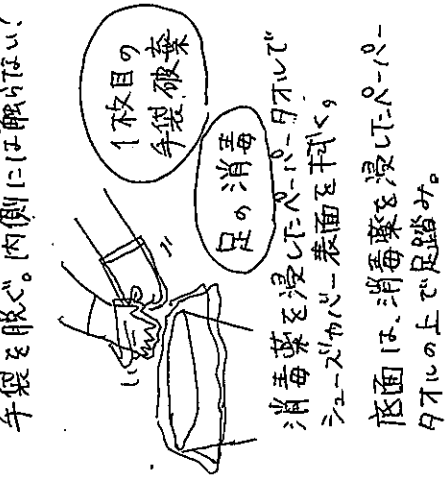 手袋を脱ぐ。内側には触らない!
1枚目の
手袋破棄
足の消毒
消毒薬を浸したペーパータオルで
シューズカバー表面を拭く。
底面は、消毒薬を浸したペーパー
タオルの上で足踏み。